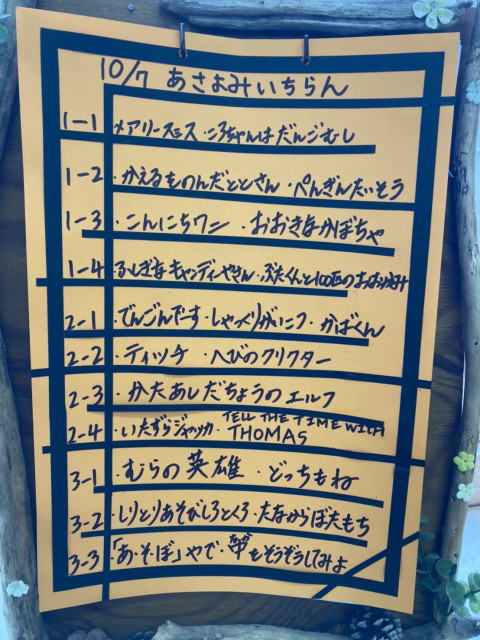 10/7 あさよみいちらん
1-1 ・メアリースミス ・ころちゃんはだんごむし
1-2 ・かえるものんだととさん ・ぺんぎんたいそう
1-3 ・こんにちワニ ・おおきなかぼちゃ
1-4 ふしぎなキャンディーやさん・ぶたくんと100匹のおおかみ
2-1 ・でんごんでーす・しゃっくりがいこつ ・かばくん
2-2 ・ティッチ ・へびのクリクター
2-3 ・かたあしだちょうのエルフ
2-4 ・いたずらジャッカ・TELL THE TIME WITH THOMAS
3-1 ・むらの英雄 ・どっちもね
3-2 ・しりとりあそびしろとくろ・たなからぼたもち
3-3 ・「あ・そ・ぼ」やで・ をそうぞうしてみよ